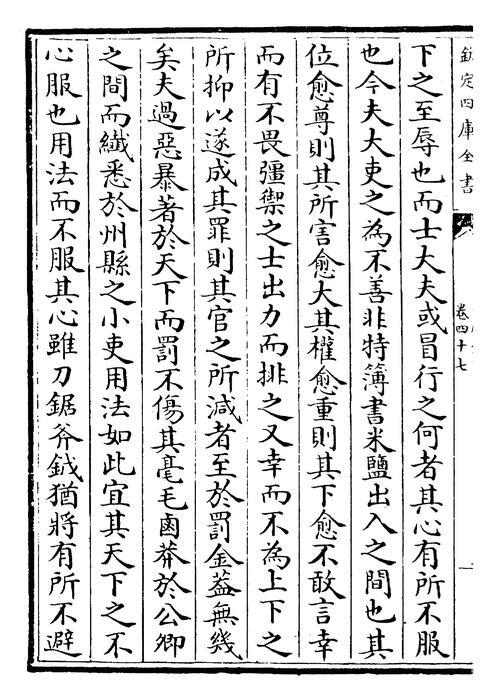 欽定四庫全書
卷四十七
下之至辱也而士大夫或冒行之何者其心有所不服
也今夫大吏之為不善非特簿書米鹽出入之間也其
位愈尊則其所害愈大其權愈重則其下愈不敢言幸
而有不畏彊禦之士出力而排之又幸而不為上下之
所抑以遂成其罪則其官之所減者至於罰金蓋無幾
矣夫過惡暴著於天下而罰不傷其毫毛鹵莽於公卿
之間而纖悉於州縣之小吏用法如此宜其天下之不
心服也用法而不服其心雖刀鋸斧鉞猶將有所不避